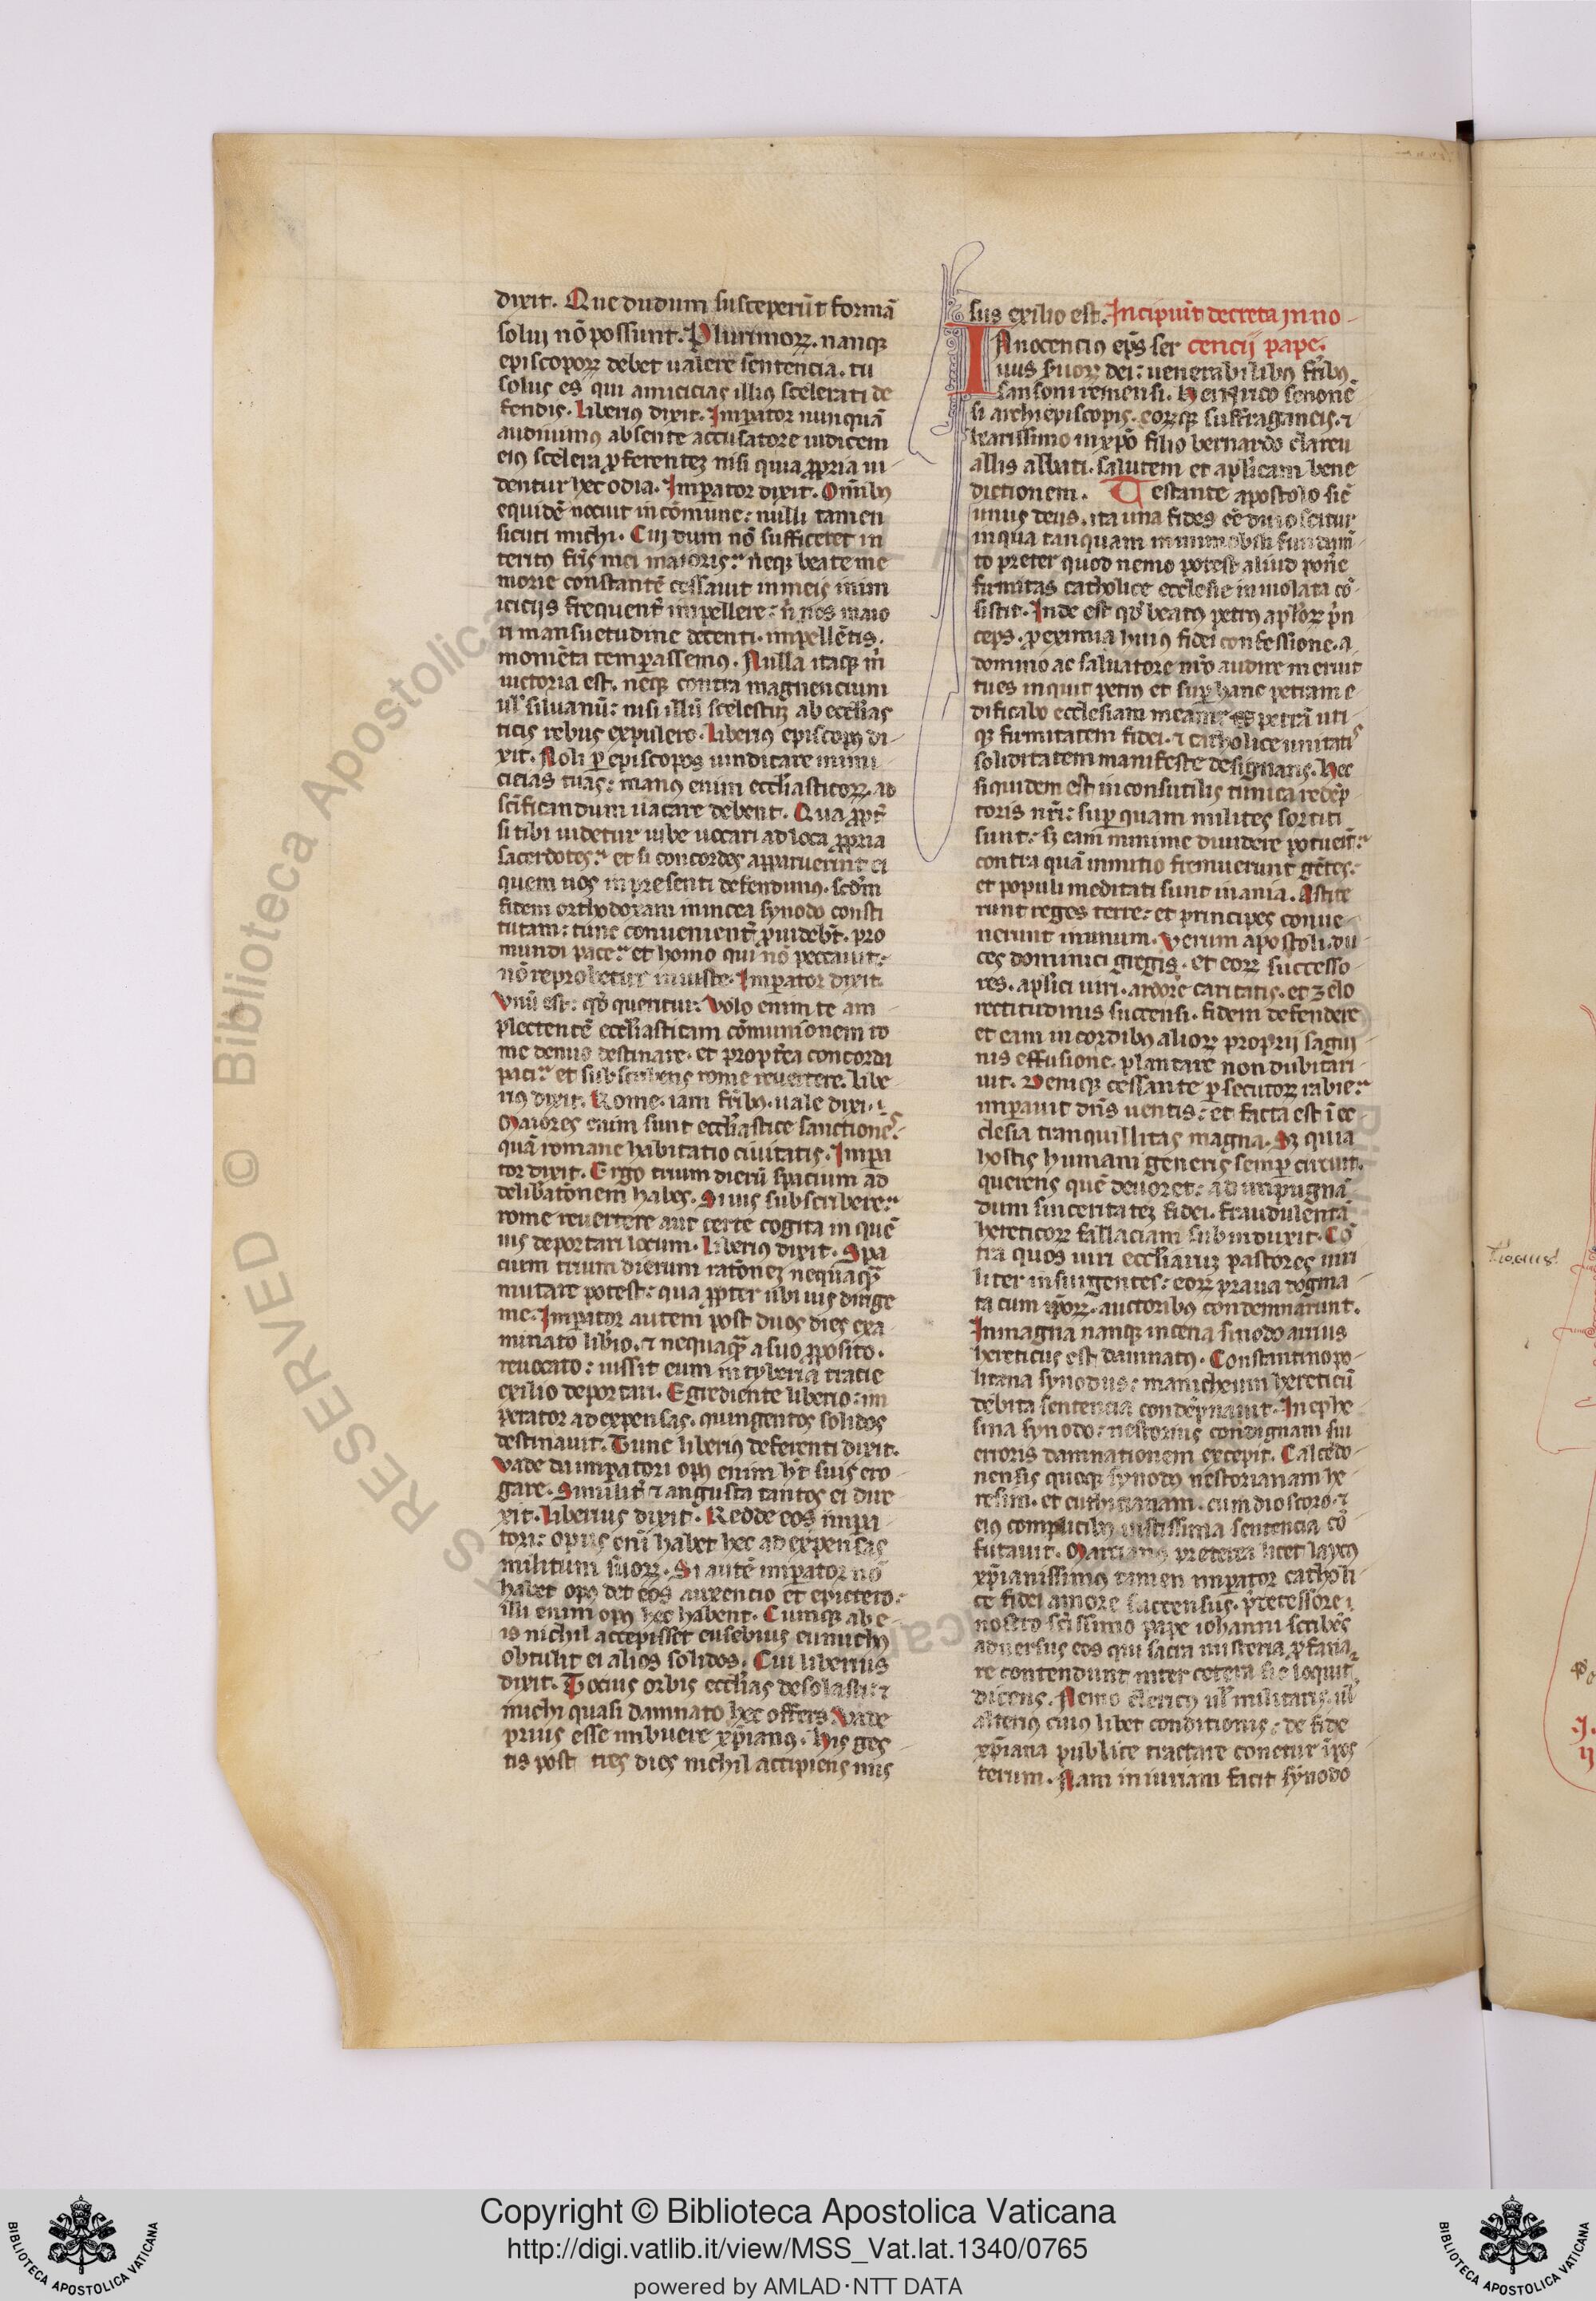 dixit. Que dudum susceperūt formā
solui nō possunt. Plurimoꝝ. nanqꝫ
episcopoꝝ debet ualere sentencia. tu
solus es qui amicicias illius scelerati de
fendis. Liberiꝰ dixit. Imꝑator nunquā
audiuimꝰ absente accusatore iudicem
eiꝰ scelera ꝓferentez nisi quia ꝓpria in-
dentur hec odia. Imꝑator dixit. Omībꝰ
equidē nocuit in cōmune: nulli tamen
sicuti michi. Cui dum nō sufficeret in
teritꝰ fr̄is mei maioris: neqꝫ beate me
morie constantē cessauit in meis inim
iciciis frequenť impellere: nos maio
ri mansuetudine decenti. impellētis.
momēta temꝑassemꝰ. Nulla itaqꝫ m̄
uictoria est. neqꝫ contra magnencium
ul̓ siluanū: nisi illū scelestuz ab ecclīas
ticis rebus expulero. Liberiꝰ episcopꝰ di-
xit. Noli ꝑ episcopos uindicare inimi
cicias tuas: manꝰ enim ecclīasticoꝝ. ad
scīficandum uacare debent. Qua ꝓpť
si tibi uidetur iube uocari ad loca ꝓpria
sacerdotes: et si concordes apparuerint ei
quem nos in presenti defendimꝰ. scđm
fidem orthodoxam in nicea synodo consti
tutam: tunc conuenienť ꝓuidebūt. pro
mundi pace: et homo qui nō peccauit:
nō reprobetur iniuste. Imperator dixit
Vnū est: qđ queritur: Volo enim te am
plectentē ecclīasticam cōmunionem ro
me denuo destinare. et propťea concordi
paci: et subscribens rome reuertere. Libe-
riꝰ dixit. Rome. iam fr̄ibꝰ. uale dixi.
Maiores enim sunt ecclīastice sanctiones:
quā romane habitatio ciuitatis. Impa
tor dixit. Ergo trium dierū spacium ad
delibatōnem habes. Si uis subscribere:
rome reuertere aut certe cogita in quē
uis deportari locum. Liberiꝰ dixit. Spa
cium trium dierum ratōnez nequaqꝫ
mutare potest: qua ꝓpter ubi uis dirige
me. Imꝑator autem post duos dies exa
minato libīo. ⁊ nequaqꝫ a suo ꝓposito.
reuocato: iussit eum in tyberia tracie
exilio deportari. Egrediente liberio: im
perator ad expensas. quingentos solidos
destinauit. Tunc liberiꝰ deferenti dixit.
Vade da imꝑatori opꝰ enim h̄t suis ero-
gare. Similiť ⁊ augusta tantos ei dire
xit. Liberius dixit. Redde eos impa-
tori: opus enī habet hec ad expensas
militum suoꝝ. Si autē imꝑator nō
habet opꝰ det eos auxencio et epictero.
illi enim opꝰ hec habent. Cumqꝫ ab e-
is nichil accepisset eusebius eunuchꝰ
obtulit ei alios solidos. Cui liberius
dixit. Tocius orbis ecclīas desolasti: ⁊
michi quasi damnato hec offers. Vade
prius esse imbuere xp̄ianꝰ. His ges
tis post tres dies nichil accipiens mis
sus exilio est. Incipiūt decreta inno-
Innocenciꝰ ep̄s ser cencij pape.
uus suoꝝ dei: uenerabilibꝰ fr̄ibꝰ.
sansoni remensi. Henrico senonē
si archiepiscopis. eoꝝqꝫ suffraganeis. ⁊
beatissimo in xp̄o filio bernardo clareu
allis abbati. salutem et apl̓icam bene
dictionem. Testante apostolo sic̄
unus deus. ita una fides eē dinoscitur
in qua tanquam in inmobili fundam̄
to preter quod nemo potest aliud pon̄e
firmitas catholice ecclesie inuiolata cō-
sistit. Inde est qđ beatꝰ petrꝰ apl̓oꝝ p̄n
ceps. ꝓ eximia huiꝰ fidei confessione. a
domino ac saluatore nr̄o audire meruit
tu es inquit petrꝰ et suꝑ hanc petram e-
dificabo ecclesiam meam: petrā uti-
qꝫ firmitatem fidei. ⁊ catholice unitatis
soliditatem manifeste designans. Hec
siquidem est inconsutilis tunica redēp
toris nr̄i: suꝑ quam milites sortiti
sunt: sꝫ eam minime diuidere potuer̄:
contra quā in initio fremuerunt gētes:
et populi meditati sunt inania. Astite
runt reges terre: et principes conue-
nerunt in unum. Verum apostoli. du
ces dominici gregis. et eoꝝ successo-
res. apl̓ici uiri. ardore caritatis. et zelo
rectitudinis succensi. fidem defendere
et eam in cordibꝰ alioꝝ proprij sagui
nis effusione. plantare non dubitari-
uit. Denique cessante ꝑsecutoꝝ rabie:
imꝑauit dn̄s uentis: et facta est ī ec
clesia tranquillitas magna. Sꝫ quia
hostis humani generis semꝑ circuit.
querens quē deuoret: ad inpugnā
dum sinceritatez fidei. fraudulentā
hereticoꝝ fallaciam subinduxit. Cō
tra quos uiri ecclīaruz pastores uiri
liter insurgentes: eoꝝ praua dogma-
ta cum ip̄oꝝ. auctoribꝰ condemnarunt.
In magna nanqꝫ in cena sinodo arrius
hereticus est damnatꝰ. Constantinopo-
litana synodus: manicheum hereticū
debita sentencia condēpnauit. In ephe-
sina synodo: nestorius condignam sui
erroris damnationem excepit. Calcedo-
nensis quoqꝫ synodꝰ nestorianam he-
resim. et euthicianam. cum dioscoro. ⁊
eiꝰ complicibꝰ iustissima sentencia cō
futauit. Marcianꝰ preterea licet laycꝰ
xp̄ianissimꝰ tamen imꝑator catholi-
ce fidei amore succensus. ꝓdecessore i
nostro scīssimo pape iohanni scribēs
aduersus eos qui sacra misteria ꝓfana
re contendunt inter cetera sic loquit̉
dicens. Nemo clericꝰ ul̓ militaris. ul̓
alteriꝰ cuius libet conditionis: de fide
xp̄iana publice tractare conetur ī pos
terum. Nam iniuriam facit synodo
Copyright © Biblioteca Apostolica Vaticana
http://digi.vatlib.it/view/MSS_Vat.lat.1340/0765
powered by AMLAD·NTT DATA
BIBLIOTECA APOSTOLICA VATICANA
BIBLIOTECA APOSTOLICA VATICANA